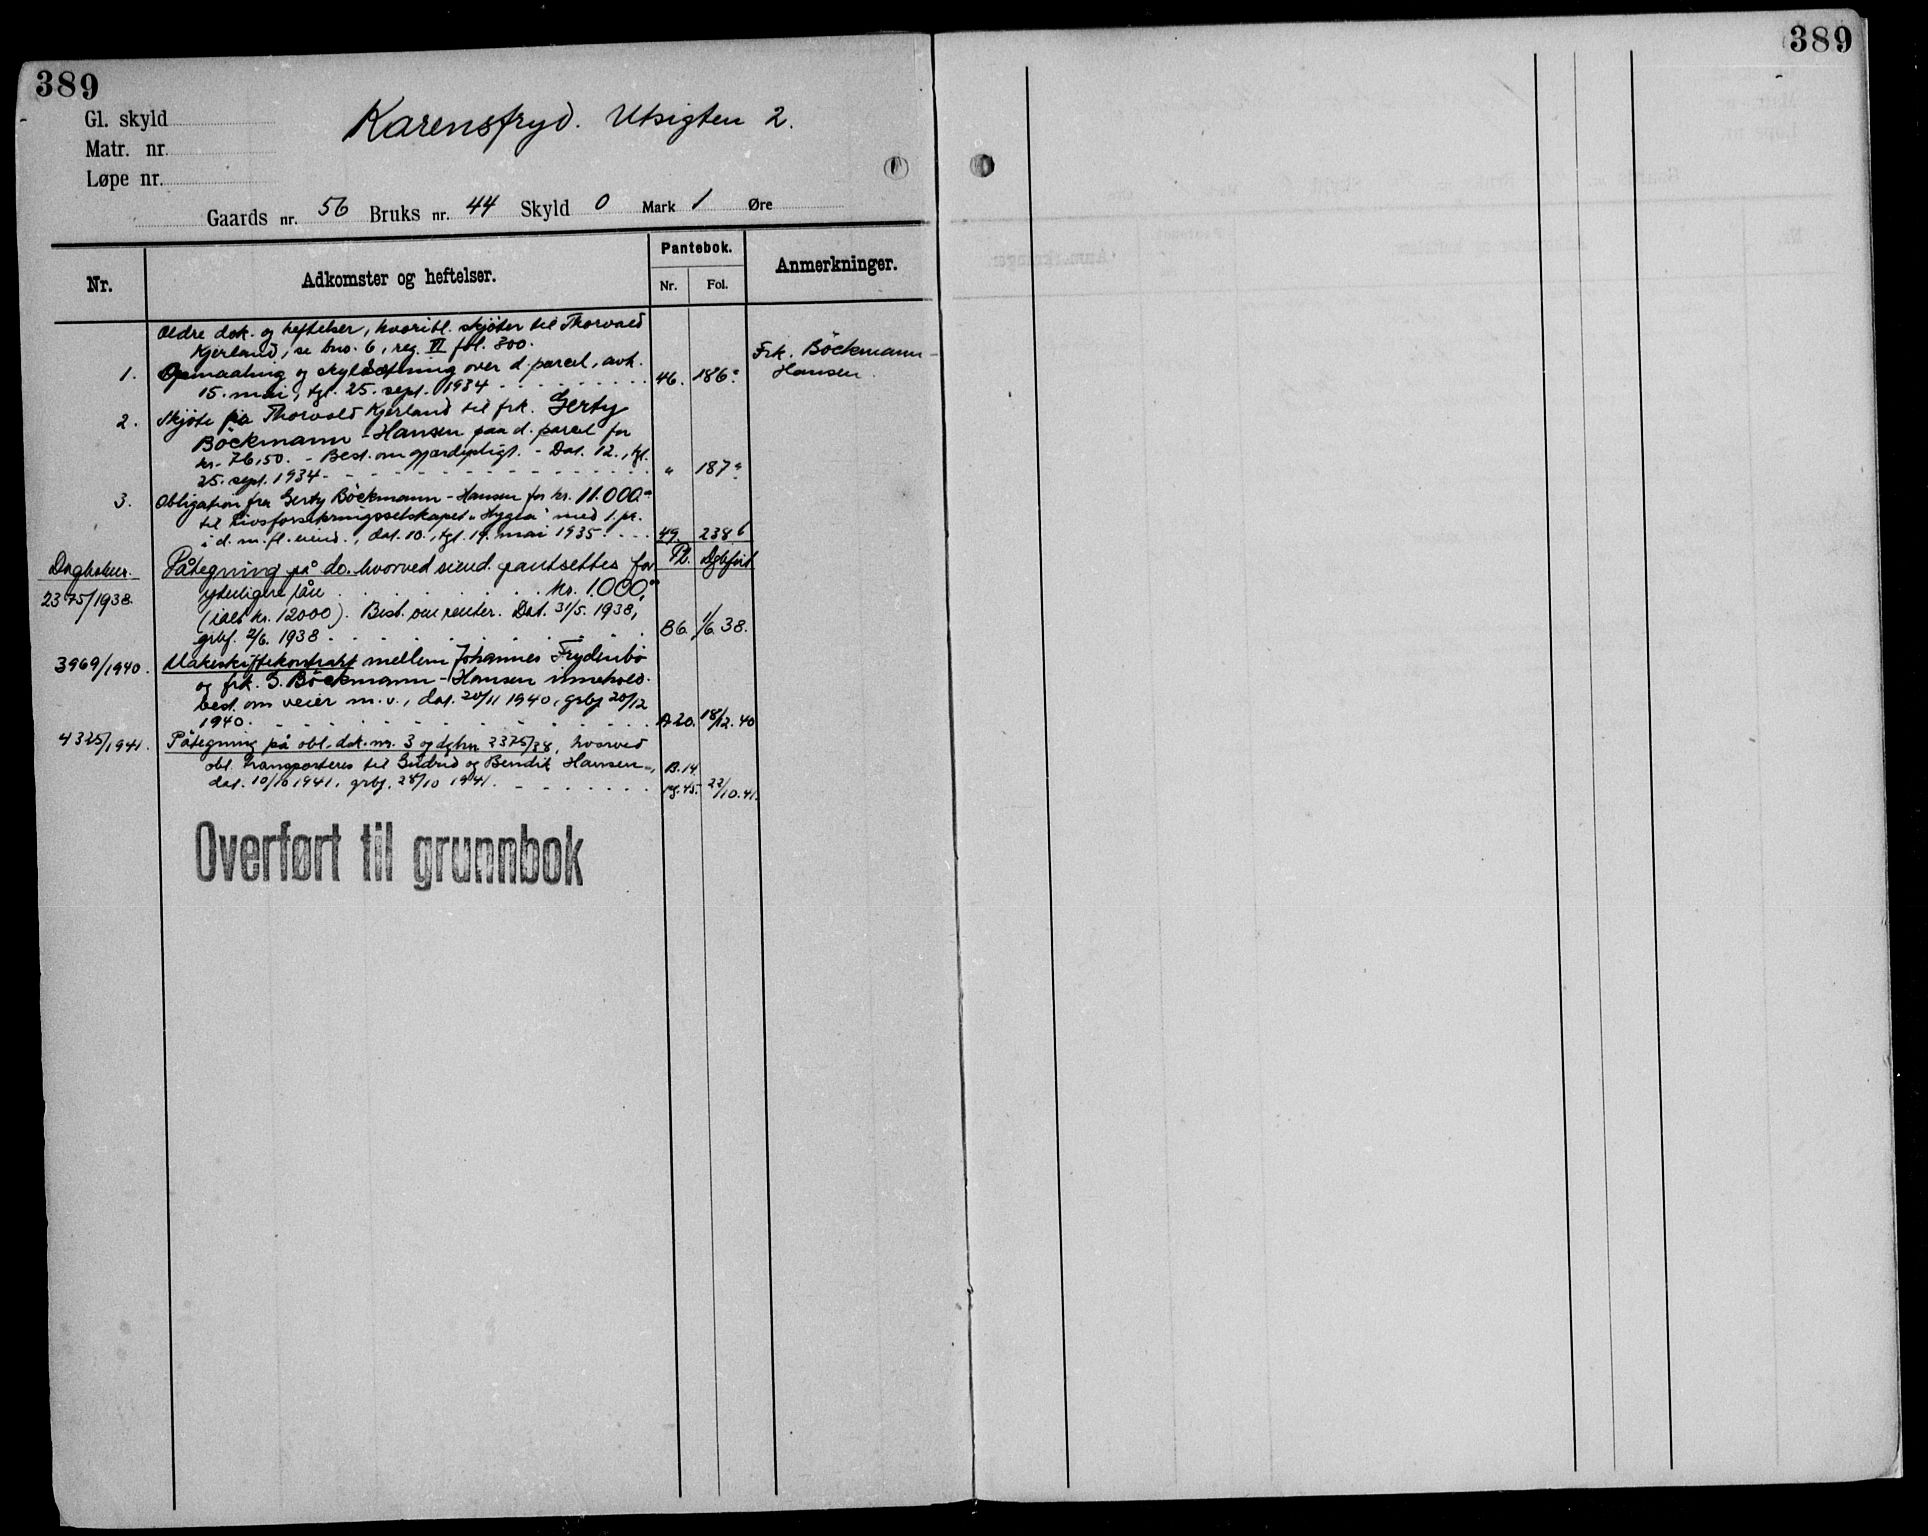 389
389
Gl. skyld
Matr. nr.
Løpe nr.
Karensfryd. Utsigten 2.
Gaards nr. 56 Bruks nr. 44 Skyld 0 Mark 1 Øre
Nr.
Adkomster og heftelser.
Pantebok.
Nr. Fol.
Anmerkninger.
Ældre dok. og heftelser, hvoribl. skjøter til Thorvald
Kjerland, se bno. 6, reg. VI fol. 300.
Frk. Böckmann-
Hansen.
1. Opmaaling og skyldsetning over d. parcel, avh.
15. mai, tgl. 25. sept. 1934 46. 186a
2. Skjøte fra Thorvald Kjerland til frk. Gerty
Böckmann-Hansen paa d. parcel for
kr. 76,50. - Best. om gjerdepligt. - Dat. 12., tgl.
25. sept. 1934 - " 187a
3. Obligation fra Gerty Böckmann-Hansen for kr. 11.000.-
til Livsforsikringsselskapet "Hygea" med 1. pr.
i d. m. fl. eiend., dat. 10., tgl. 19. mai 1935. 49. 238b
Dagboknr. Påtegning på do. hvorved eiend. pantsettes for Pb. Dgbført
2375/1938. yterligere lån kr. 1.000.-
(ialt kr. 12000). Best. om renter. Dat. 31/5. 1938,
grbf. 2/6. 1938 B6. 1/6. 38.
3969/1940. Makeskiftekontrakt mellem Johannes Frydenbö
og frk. G. Böckmann-Hansen innehold.
best. om veier m.v., dat. 20/11 1940, grbf 20/12
1940. A20. 18/12. 40
4325/1941. Påtegning på obl. dok. nr. 3 og dgbnr 2375/38, hvorved
obl. transporteres til Gudrid og Bendik Hansen, B.14
dat. 10/10 1941, grbf. 28/10 1941. pg. 45. 22/10. 41.
Overført til grunnbok